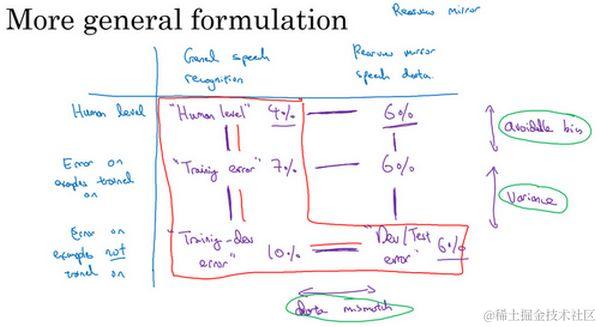 More general formulation
Rearview mirror
General speech
recognition
Rearview mirror
speech data.
Human level
"Human level" 4%
6%
avoidable bias
Error on
examples trained
on
"Training error" 7%
6%
Variance
Error on
examples not
trained on
"Training-dev
error" 10%
"Dev/Test
error" 6%
data mismatch
@稀土掘金技术社区